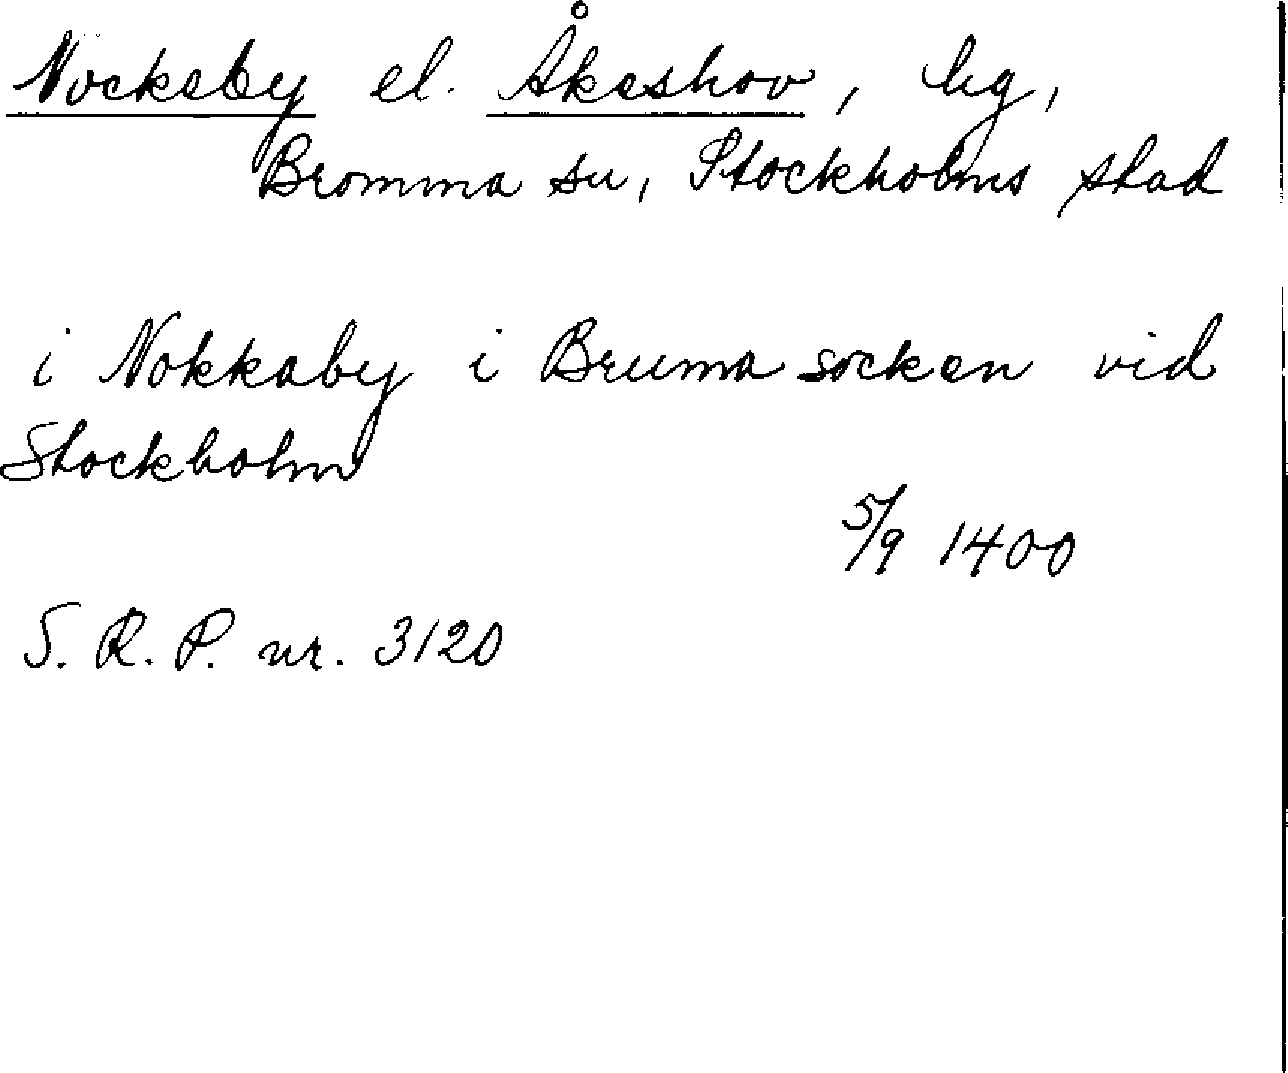 Nockeby el. Åkeshov, hg,
Bromma sn, Stockholms stad
i Nokkaby i Bruma socken vid
Stockholm
5/9 1400
S. R. P. nr. 3120